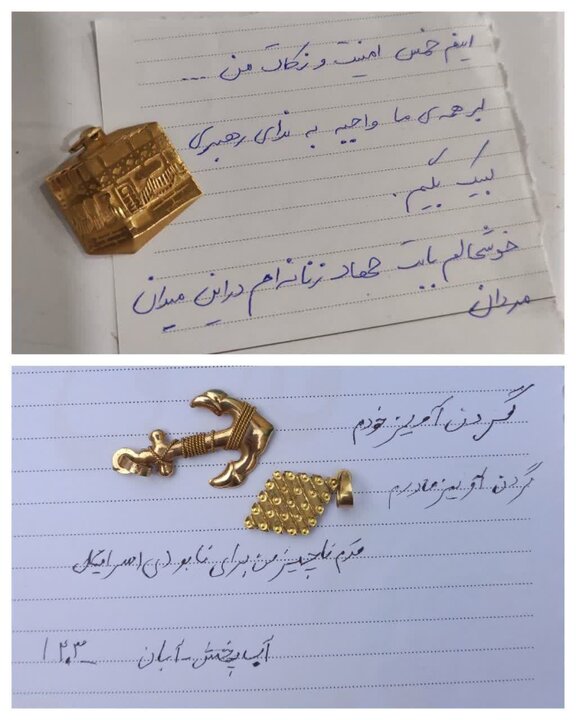 اینم خمس امنیت و زکات من ...
بر همه‌ی ما واجبه به ندای رهبری
لبیک بگیم.
خوشحالم بابت جهاد زنانه‌ام در این میدان
مردان
گردن آویز خودم
گردن آویز مادرم
قدم ناچیز من برای نابودی اسرائیل
آبپخش - آبان